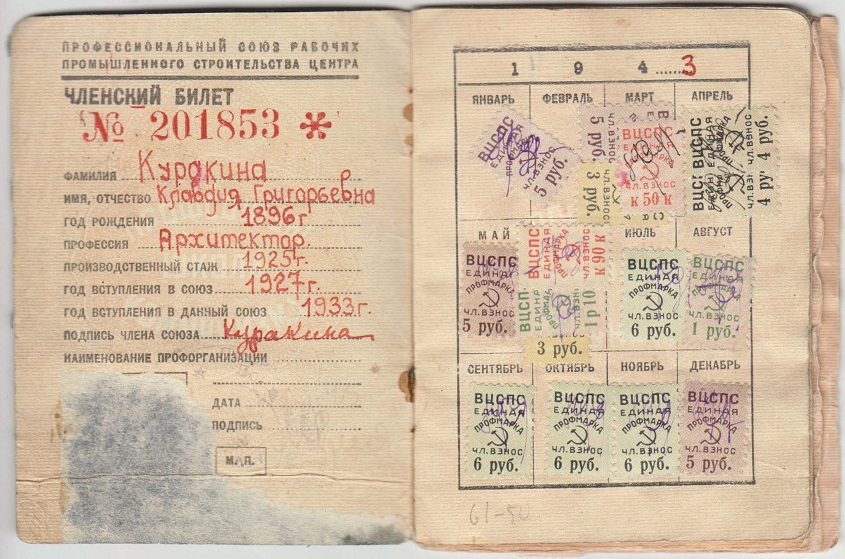 ПРОФЕССИОНАЛЬНЫЙ СОЮЗ РАБОЧИХ
ПРОМЫШЛЕННОГО СТРОИТЕЛЬСТВА ЦЕНТРА
ЧЛЕНСКИЙ БИЛЕТ
№ 201853 *
ФАМИЛИЯ Куракина
ИМЯ, ОТЧЕСТВО Клавдия Григорьевна
ГОД РОЖДЕНИЯ 1896 г
ПРОФЕССИЯ Архитектор.
ПРОИЗВОДСТВЕННЫЙ СТАЖ 1925 г.
ГОД ВСТУПЛЕНИЯ В СОЮЗ 1927 г.
ГОД ВСТУПЛЕНИЯ В ДАННЫЙ СОЮЗ 1933 г.
ПОДПИСЬ ЧЛЕНА СОЮЗА Куракина
НАИМЕНОВАНИЕ ПРОФОРГАНИЗАЦИИ
ДАТА
ПОДПИСЬ
М.П.
1 9 4 3
ЯНВАРЬ ФЕВРАЛЬ МАРТ АПРЕЛЬ
ВЦСПС ЕДИНАЯ ПРОФМАРКА ЧЛ. ВЗНОС 5 руб.
5 руб.
ЕДИНАЯ ПРОФМАРКА ЧЛ. ВЗНОС к 50 к
3 руб.
ВЦСПС ЕДИНАЯ 4 руб.
МАЙ ИЮЛЬ АВГУСТ
ВЦСПС ЕДИНАЯ ПРОФМАРКА ЧЛ. ВЗНОС 5 руб.
ВЦСПС ЕДИНАЯ к 90 к
1 р 10
3 руб.
ВЦСПС ЕДИНАЯ ПРОФМАРКА ЧЛ. ВЗНОС 6 руб.
ВЦСПС ЕДИНАЯ ПРОФМАРКА ЧЛ. ВЗНОС 1 руб.
СЕНТЯБРЬ ОКТЯБРЬ НОЯБРЬ ДЕКАБРЬ
ВЦСПС ВЦСПС ВЦСПС ВЦСПС
ЕДИНАЯ ЕДИНАЯ ЕДИНАЯ ЕДИНАЯ
ПРОФМАРКА ПРОФМАРКА ПРОФМАРКА ПРОФМАРКА
ЧЛ. ВЗНОС ЧЛ. ВЗНОС ЧЛ. ВЗНОС ЧЛ. ВЗНОС
6 руб. 6 руб. 6 руб. 5 руб.
61-50